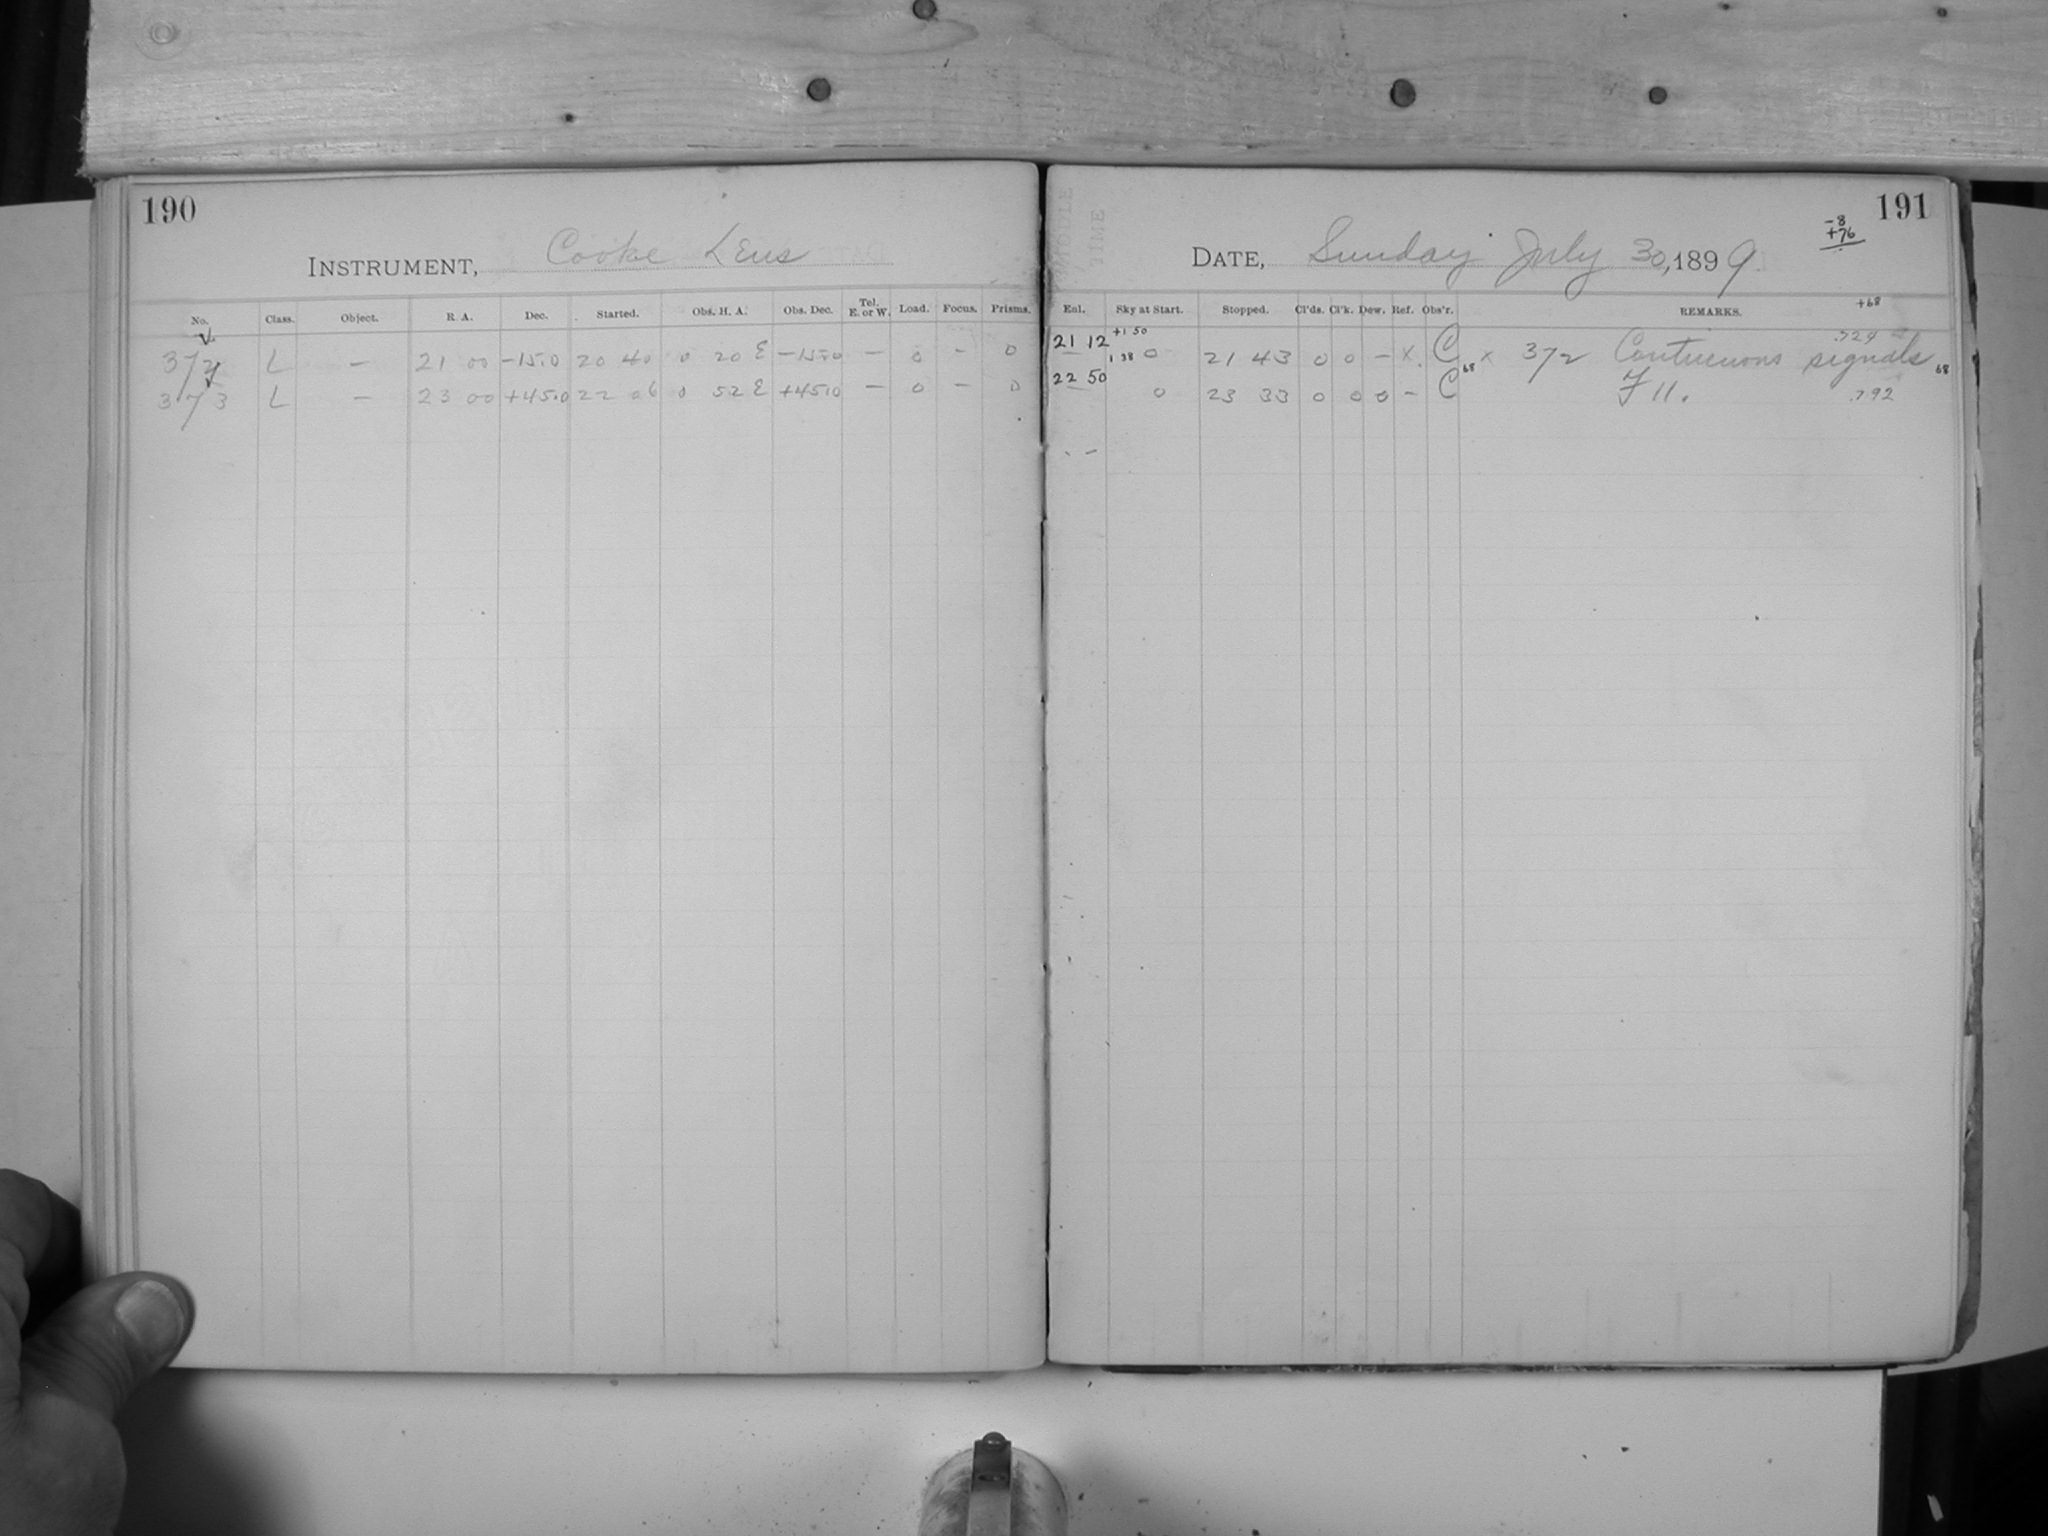 190
INSTRUMENT, Cooke Lens
No. Class. Object. R. A. Dec. Started. Obs. H. A. Obs. Dec. Tel. E. or W. Load. Focus. Prisms.
372 L — 21 00 —15.0 20 40 0 20 E —15.0 — 0 — 0
373 L — 23 00 +45.0 22 06 0 52 E +45.0 — 0 — 0
MIDDLE TIME
191
-8
+76
DATE, Sunday July 30, 1899.
+68
Enl. Sky at Start. Stopped. Cl'ds. Cl'k. Dew. Ref. Obs'r. REMARKS.
21 12 +1 50 1 38 0 21 43 0 0 — x. C 68 x 372 Continuous signals 68
.724
22 50 0 23 33 0 0 0 — C F 11. .792